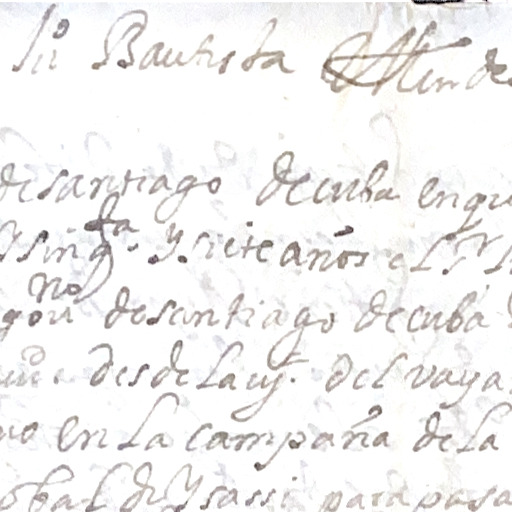 Ju.º Bautista Men de
de santiago de cuba en qu
Y sinq.ta Y siete años el S.r
gov.no de santiago de cuba
desde la uy.ª del vaya
uo en la campaña de la
obal de Ysassi para pasa